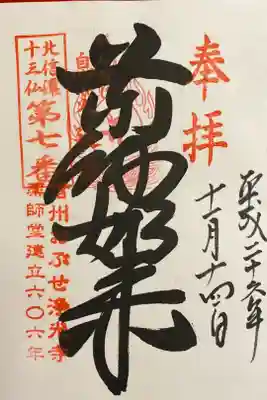 奉拝
平成二十六年
十一月十四日
薬師如来
北信濃
十三仏
第七番
信州おぶせ浄光寺
薬師堂建立六〇六年